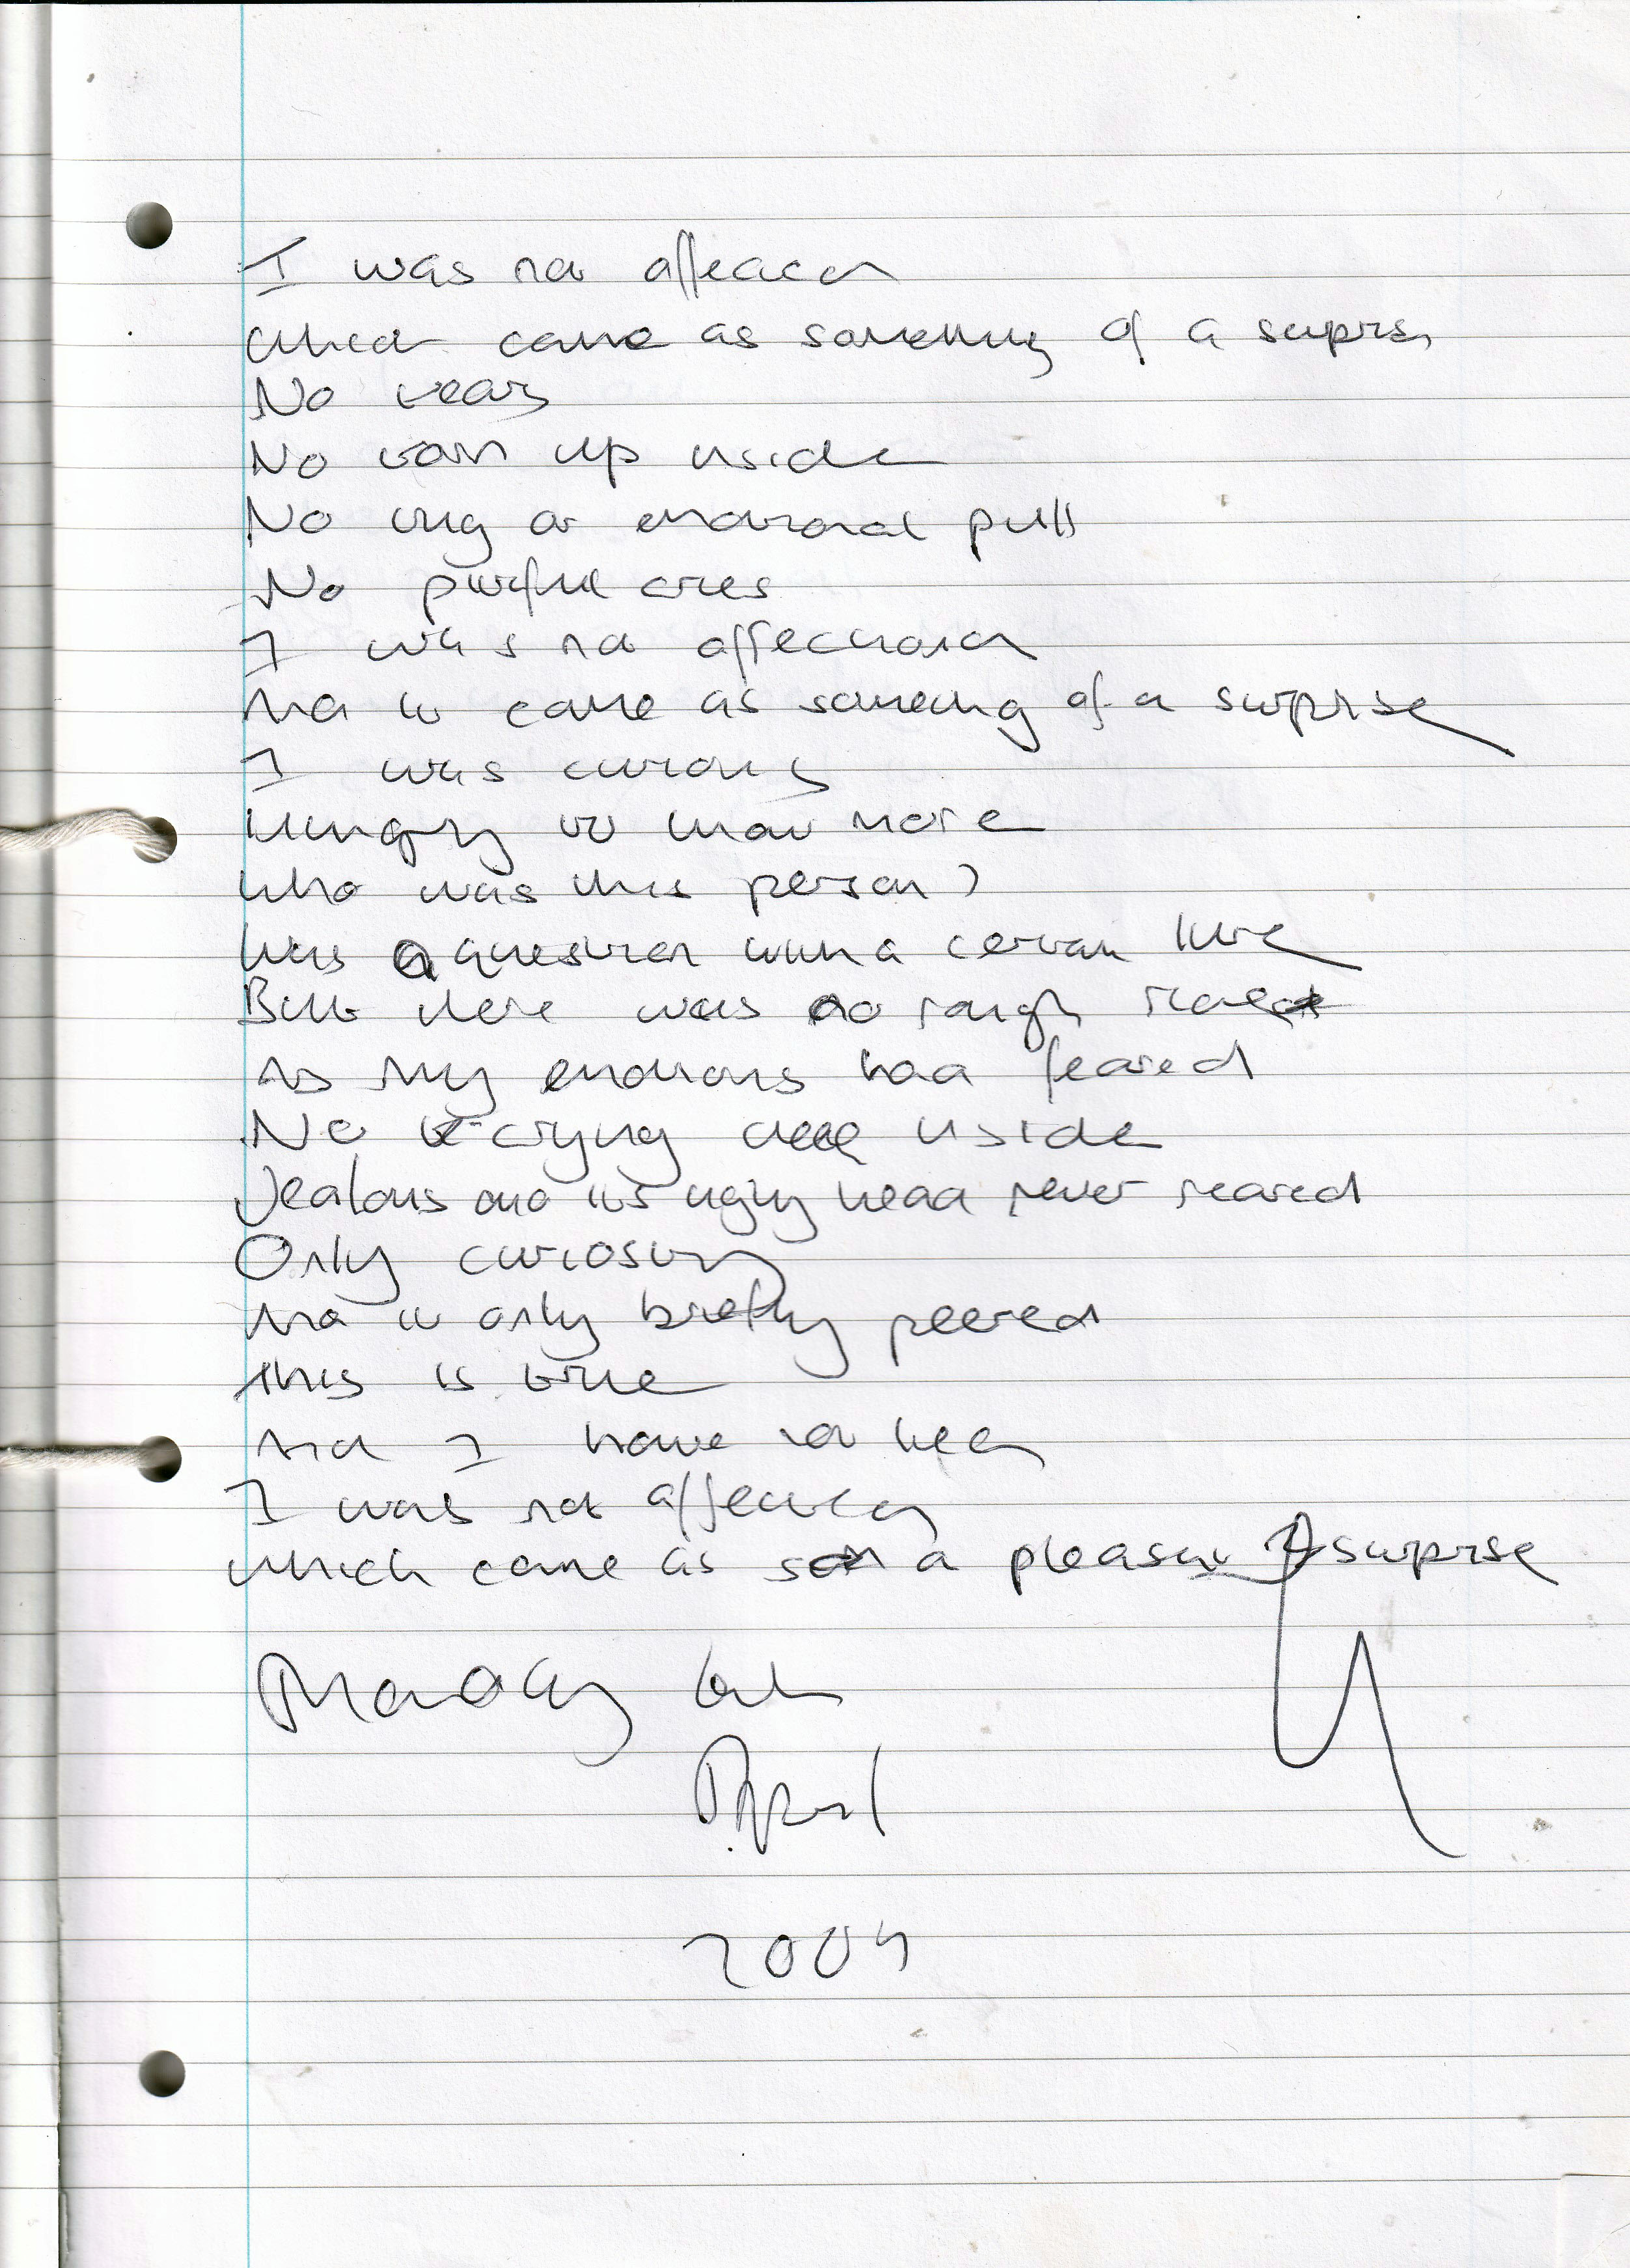 I was not affected
Which came as something of a suprise
No tears
No torn up inside
No tug at emotional pull
No pitiful cries
I was not affectionate
And it came as something of a surprise
I was curious
Hungry to know more
Who was this person?
Was a question with a certain lure
But there was no rough
As my emotions had feared
No crying deep inside
Jealous and its ugly head never reared
Only curiosity
And it only briefly peered
This is true
And I have not lied
I was not affected
Which came as a pleasant surprise
April
2004